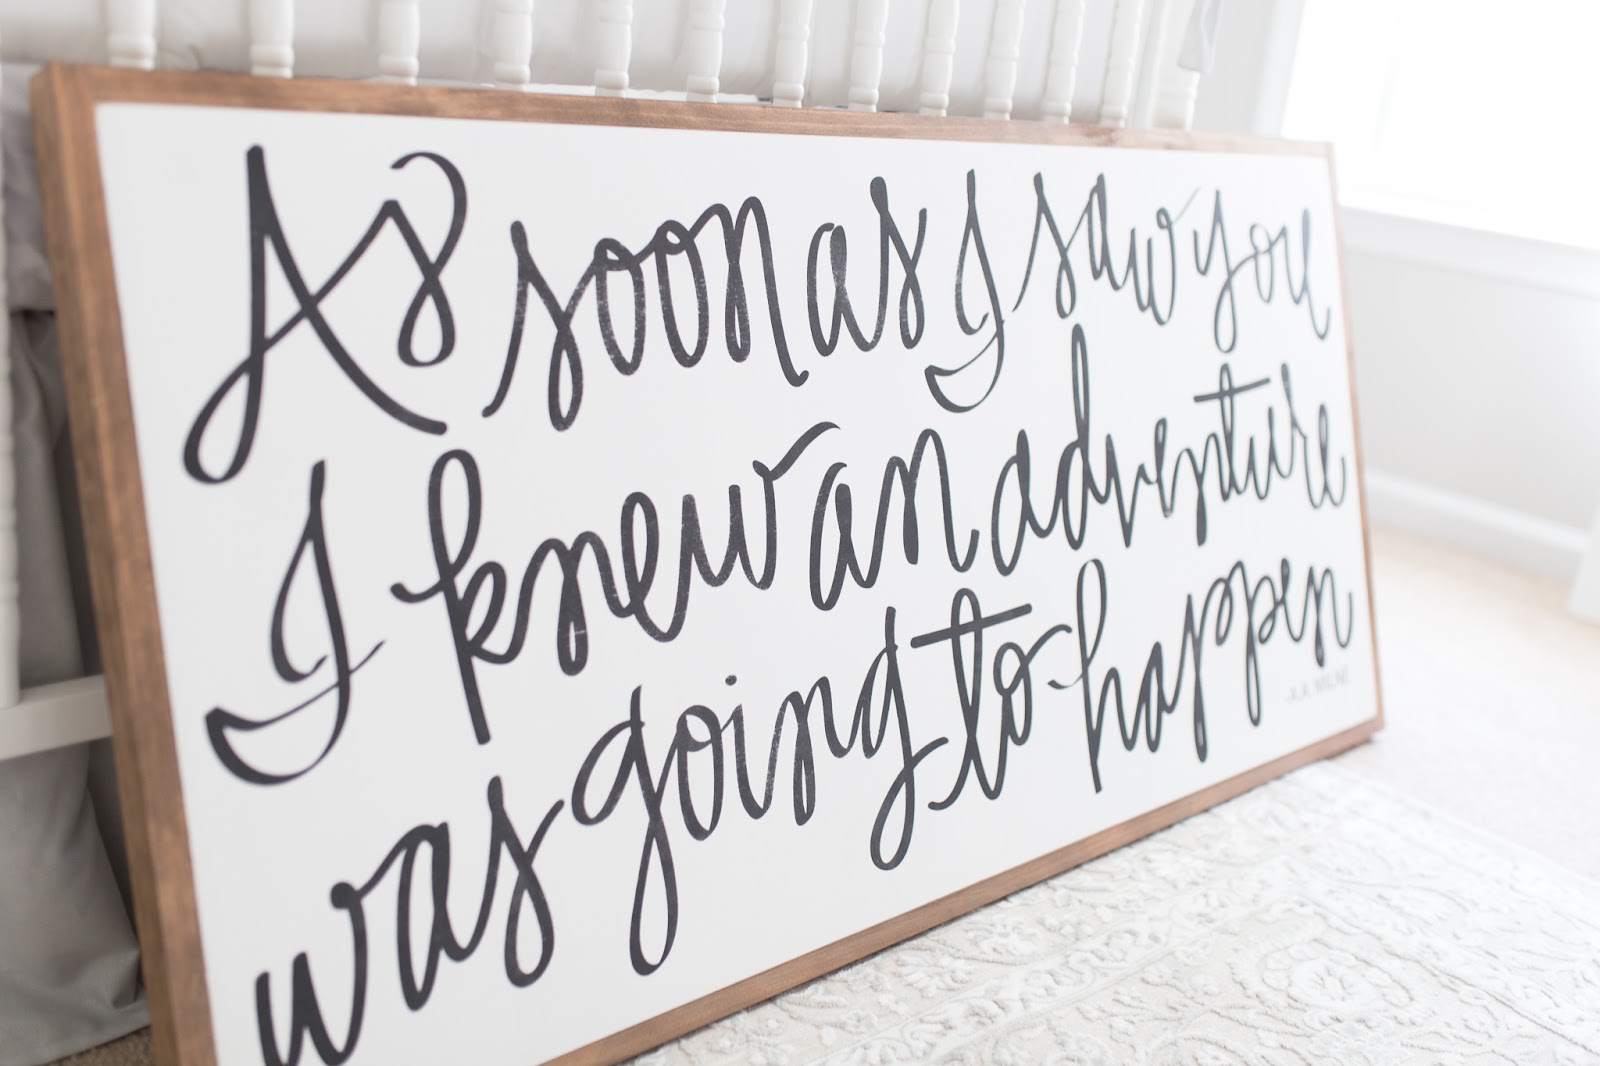 As soon as I saw you
I knew an adventure
was going to happen
-A.A. MILNE